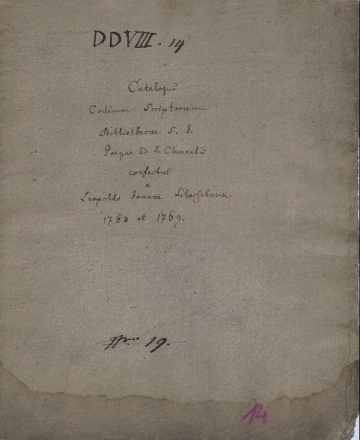 DDVIII. 14
Catalogus
Codicum Scriptorum
Bibliothecae S. J.
Pragae ad S. Clementis
confectus
a
Leopoldo Joanne
1768 et 1769.
19.
14